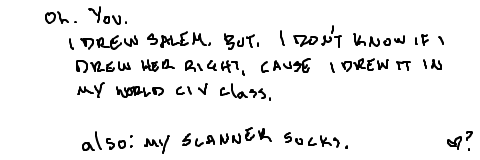 Oh. You.
I DREW SALEM. BUT. I DON'T KNOW IF I
DREW HER RIGHT, CAUSE I DREW IT IN
MY WORLD CIV CLASS.
also: MY SCANNER SUCKS. ?